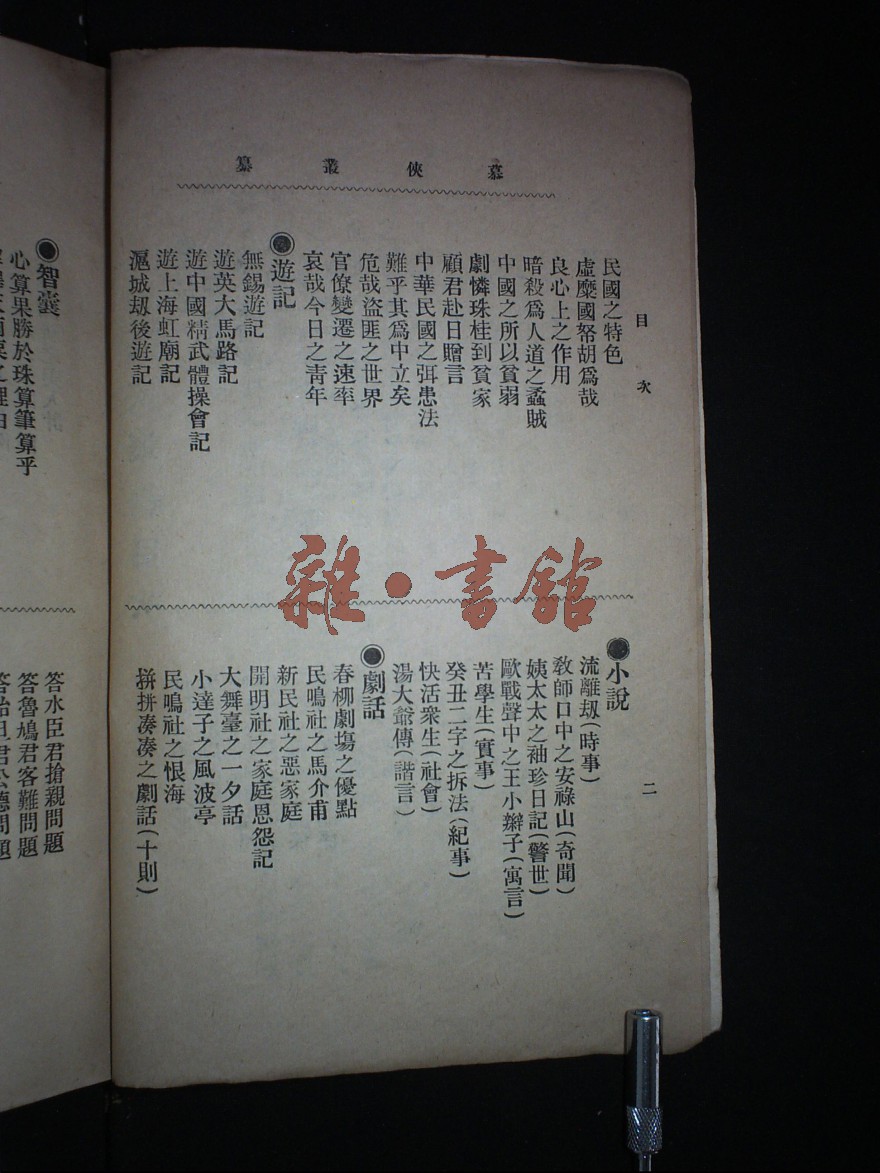 慕俠叢纂
目次
二
民國之特色
虛糜國帑胡爲哉
良心上之作用
暗殺爲人道之蟊賊
中國之所以貧弱
劇憐珠桂到貧家
顧君赴日贈言
中華民國之弭患法
難乎其爲中立矣
危哉盜匪之世界
官僚變遷之速率
哀哉今日之靑年
●遊記
無錫遊記
遊英大馬路記
遊中國精武體操會記
遊上海虹廟記
滬城刼後遊記
●小說
流離刼(時事)
敎師口中之安祿山(奇聞)
姨太太之袖珍日記(警世)
歐戰聲中之王小辮子(寓言)
苦學生(實事)
癸丑二字之拆法(紀事)
快活衆生(社會)
湯大爺傳(諧言)
●劇話
春柳劇塲之優點
民鳴社之馬介甫
新民社之惡家庭
開明社之家庭恩怨記
大舞臺之一夕話
小達子之風波亭
民鳴社之恨海
拼拼凑凑之劇話(十則)
●智囊
心算果勝於珠算筆算乎
答水臣君搶親問題
答魯鳩君客難問題
雜·書館